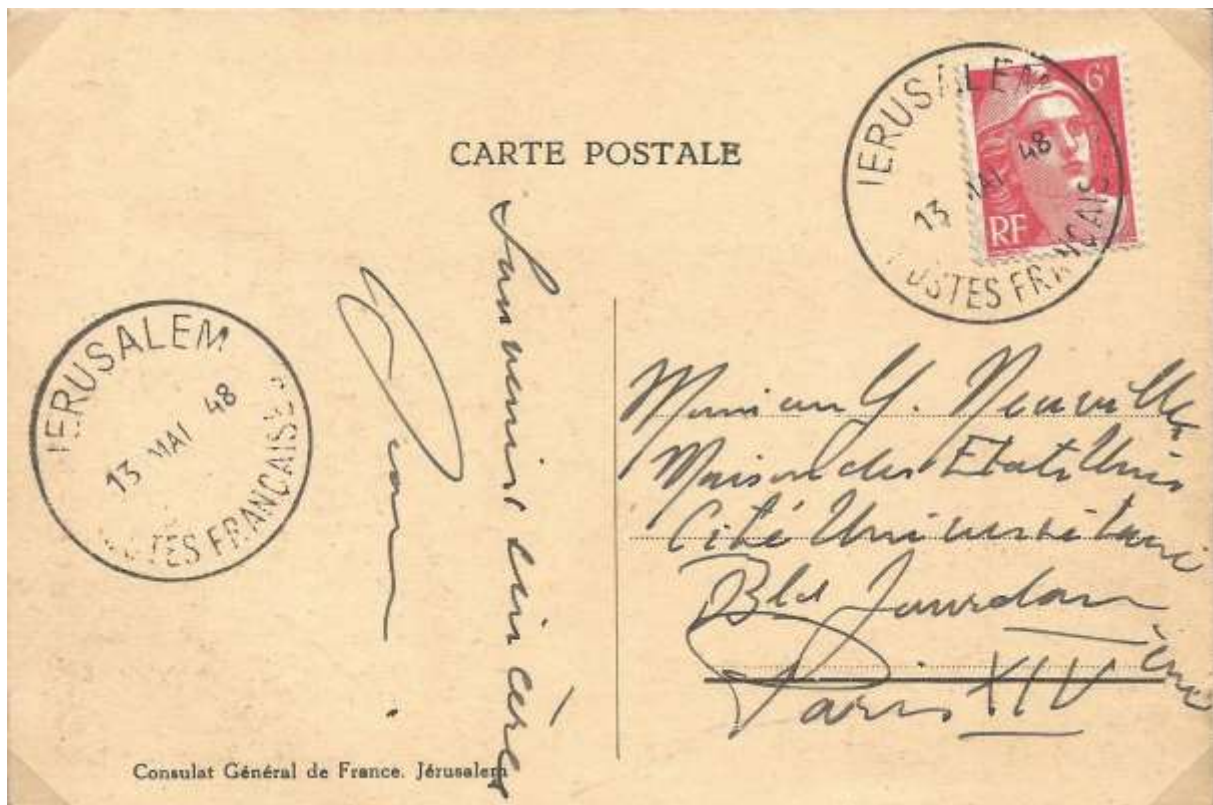 CARTE POSTALE
6F
RF
JERUSALEM
13 MAI 48
POSTES FRANÇAISES
JERUSALEM
13 MAI 48
POSTES FRANÇAISES
Souvenir sincère
Monsieur Y. Neuville
Maison des Etats Unis
Cité Universitaire
Bld Jourdan
Paris XIVème
Consulat Général de France. Jérusalem